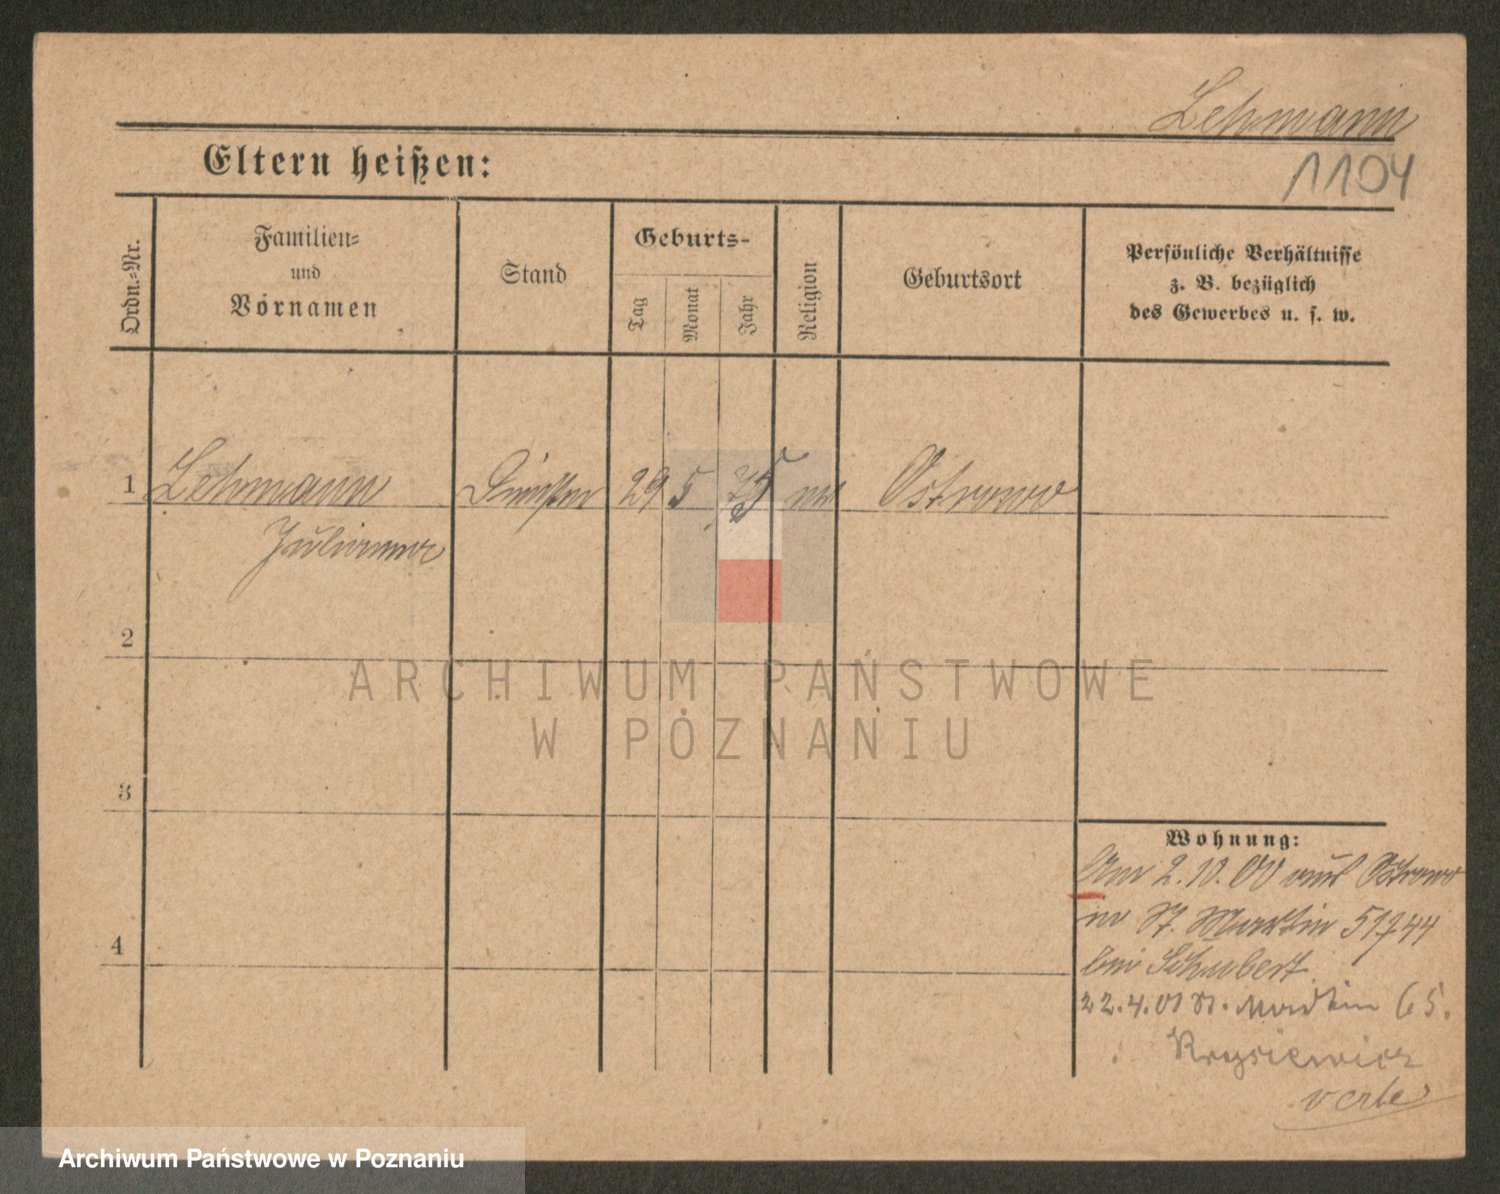 Lehmann
1104
Eltern heißen:
Ordn.=Nr.
Familien=
und
Vornamen
Stand
Geburts-
Tag
Monat
Jahr
Religion
Geburtsort
Persönliche Verhältnisse
z. B. bezüglich
des Gewerbes u. s. w.
1 Lehmann 29 5 75 Ostrowo
Julianna
2
3
4
Wohnung:
Am 2.10.00 aus Ostrowo
in St. Martin
bei Schubert
22.4.01 St. Martin 65.
Krysiewicz
ARCHIWUM PAŃSTWOWE
W POZNANIU
Archiwum Państwowe w Poznaniu